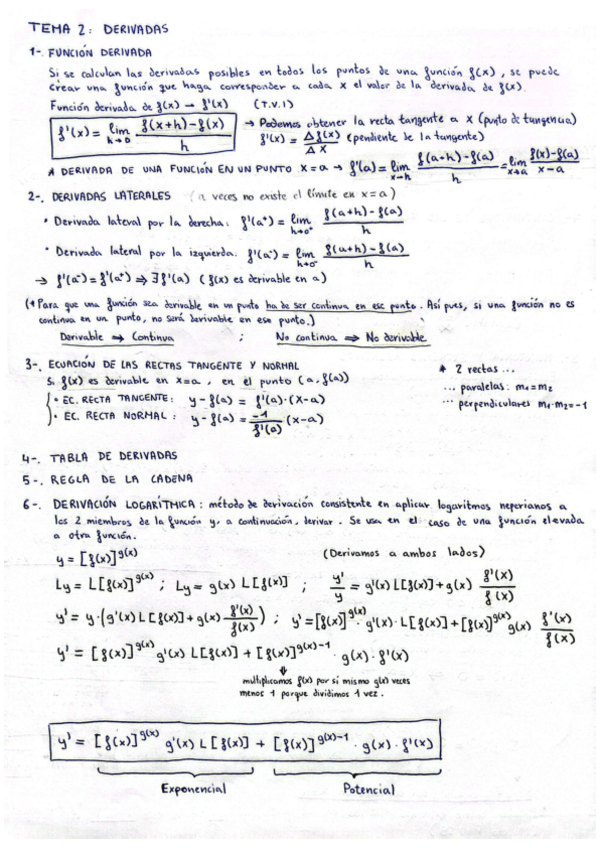 TEMA 2: DERIVADAS
1-. FUNCIÓN DERIVADA
Si se calculan las derivadas posibles en todos los puntos de una función f(x), se puede
crear una función que haga corresponder a cada x el valor de la derivada de f(x).
Función derivada de f(x) → f'(x) (T.V.I)
f'(x) = lim h→0 f(x+h)-f(x) / h → Podemos obtener la recta tangente a x (punto de tangencia)
f'(x) = Δf(x) / Δx (pendiente de la tangente)
DERIVADA DE UNA FUNCIÓN EN UN PUNTO x=a → f'(a) = lim x→h f(a+h)-f(a) / h = lim x→a f(x)-f(a) / x-a
2-. DERIVADAS LATERALES (a veces no existe el límite en x=a)
• Derivada lateral por la derecha: f'(a⁺) = lim h→0⁺ f(a+h)-f(a) / h
• Derivada lateral por la izquierda: f'(a⁻) = lim h→0⁻ f(a+h)-f(a) / h
→ f'(a⁻) = f'(a⁺) ⇒ ∃ f'(a) (f(x) es derivable en a)
(* Para que una función sea derivable en un punto ha de ser continua en ese punto. Así pues, si una función no es
continua en un punto, no será derivable en ese punto.)
Derivable ⇒ Continua ; No continua ⇒ No derivable
3-. ECUACIÓN DE LAS RECTAS TANGENTE Y NORMAL
* 2 rectas ...
Si f(x) es derivable en x=a, en el punto (a, f(a))
... paralelas: m₁=m₂
• EC. RECTA TANGENTE: y-f(a) = f'(a)·(x-a)
... perpendiculares m₁·m₂=-1
• EC. RECTA NORMAL: y-f(a) = -1 / f'(a) (x-a)
4-. TABLA DE DERIVADAS
5-. REGLA DE LA CADENA
6-. DERIVACIÓN LOGARÍTMICA: método de derivación consistente en aplicar logaritmos neperianos a
los 2 miembros de la función y, a continuación, derivar. Se usa en el caso de una función elevada
a otra función.
y = [f(x)]^g(x) (Derivamos a ambos lados)
Ly = L[f(x)]^g(x) ; Ly = g(x) L[f(x)] ; y'/y = g'(x) L[f(x)] + g(x) f'(x)/f(x)
y' = y·(g'(x) L[f(x)] + g(x) f'(x)/f(x)) ; y' = [f(x)]^g(x) · g'(x) · L[f(x)] + [f(x)]^g(x) g(x) f'(x)/f(x)
y' = [f(x)]^g(x) g'(x) L[f(x)] + [f(x)]^g(x)-1 · g(x) · f'(x)
⇓
multiplicamos f(x) por sí mismo g(x) veces
menos 1 porque dividimos 1 vez.
y' = [f(x)]^g(x) g'(x) L[f(x)] + [f(x)]^g(x)-1 · g(x) · f'(x)
Exponencial Potencial